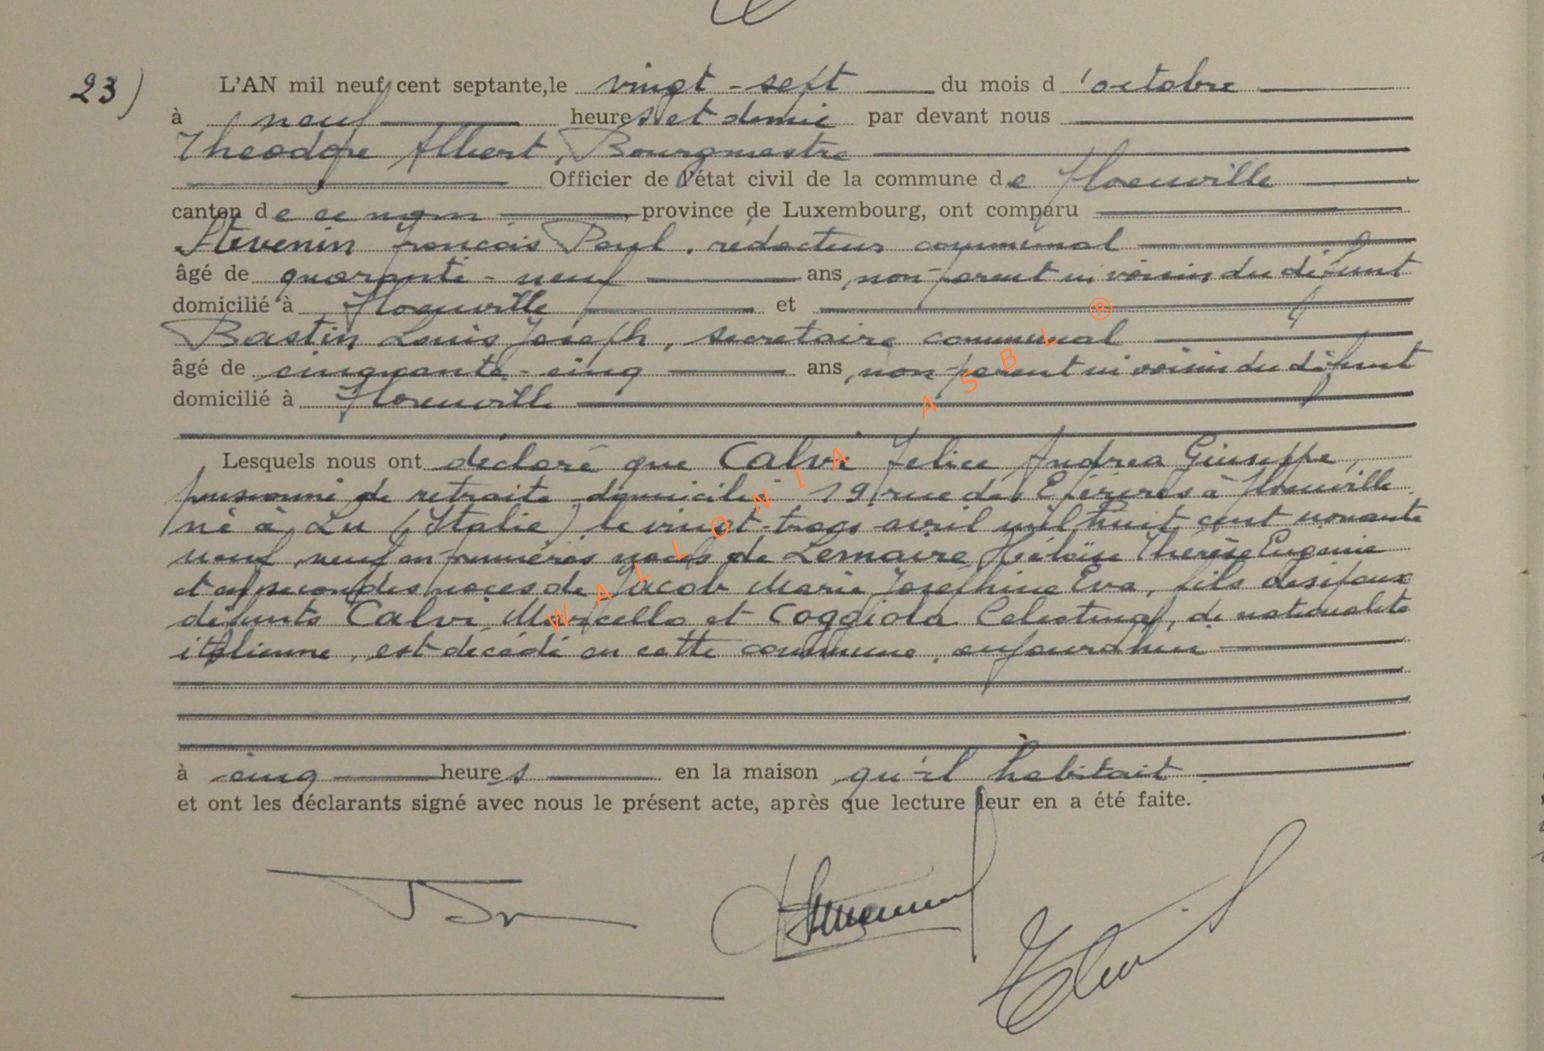 23)
L'AN mil neuf cent septante, le vingt-sept du mois d'octobre
à neuf heures et demie par devant nous
Théodore Albert, Bourgmestre
Officier de l'état civil de la commune de Florenville
canton de ce nom province de Luxembourg, ont comparu
Stévenin François Paul, rédacteur communal
âgé de quarante-neuf ans, non parent ni voisin du défunt
domicilié à Florenville et
Bastin Louis Joseph, secrétaire communal
âgé de cinquante-cinq ans, non parent ni voisin du défunt
domicilié à Florenville
Lesquels nous ont déclaré que Calvi Felice Andrea Giuseppe,
pensionné de retraite domicilié 19 rue des Epérires à Florenville
né à Lu (Italie) le vingt-trois avril mil huit cent nonante
neuf, veuf en premières noces de Lemaire Héloïse Thérèse Eugénie
et en secondes noces de Jacob Marie Joséphine Eva, fils des époux
défunts Calvi Marcello et Coggiola Celestina, de nationalité
italienne, est décédé en cette commune, aujourd'hui
à cinq heures en la maison qu'il habitait.
et ont les déclarants signé avec nous le présent acte, après que lecture leur en a été faite.
WALLONIA ASBL ®